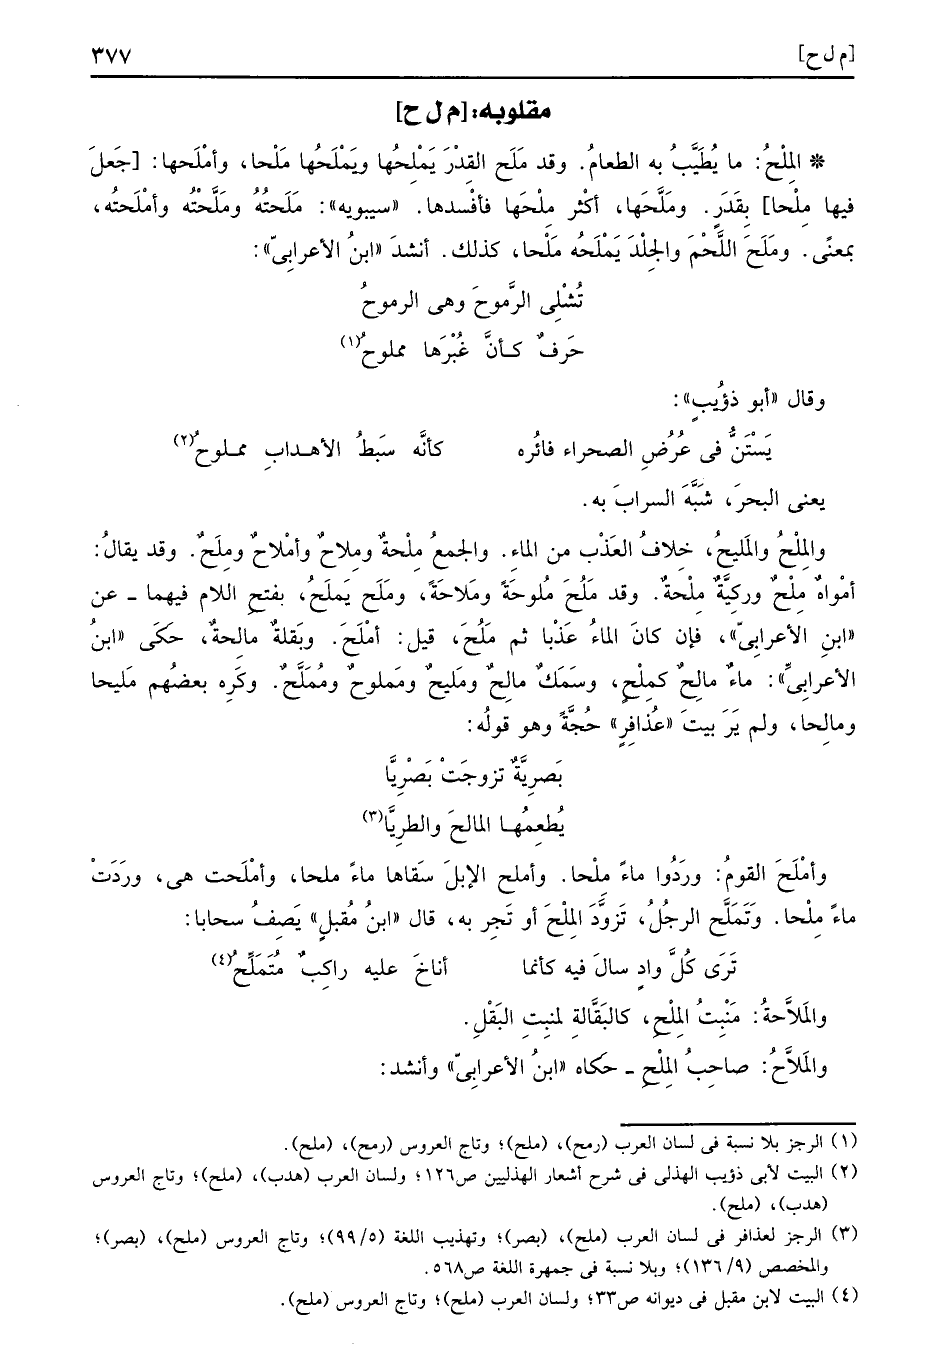 [م ل ح] ٣٧٧
مقلوبه: [م ل ح]
* المِلْحُ: ما يُطَيَّبُ به الطعامُ. وقد مَلَح القِدْرَ يَمْلِحُها ويَمْلَحُها مَلْحا، وأمْلَحها: [جَعلَ
فيها مِلْحا] بِقَدَرٍ. ومَلَّحَها، أكثر مِلْحَها فأفْسدها. «سيبويه»: مَلَحتُهُ ومَلَّحْتُه وأملحتُه،
بمعنًى. ومَلَحَ اللَّحْمَ والجِلْدَ يَمْلَحُه مَلْحا، كذلك. أنشدَ «ابنُ الأعرابىّ»:
تُشْلِى الرَّموحَ وهى الرموحُ
حَرفٌ كـأنَّ غُبْرَها مملوحُ(١)
وقال «أبو ذؤَيبٍ»:
يَسْتَنُّ فى عُرُضِ الصحراء فائُره كأنَّه سَبَطُ الأهـدابِ ممـلوحُ(٢)
يعنى البحرَ، شَبَّهَ السرابَ به.
والمِلْحُ والمَليحُ، خلافُ العَذْب من الماءِ. والجمعُ مِلْحةٌ ومِلاحٌ وأمْلاحٌ ومِلَحٌ. وقد يقالُ:
أمْواهٌ مِلْحٌ وركيَّةٌ مِلْحةٌ. وقد مَلُحَ مُلوحَةً ومَلاحَةً، ومَلَح يَملَحُ، بفتحِ اللام فيهما ـ عن
«ابنِ الأعرابىّ»، فإن كانَ الماءُ عَذْبا ثم مَلُحَ، قيل: أملَحَ. وبَقلةٌ مالحةٌ، حَكَى «ابنُ
الأعرابىِّ»: ماءٌ مالحٌ كمِلْحٍ، وسَمَكٌ مالِحٌ ومَليحٌ ومَملوحٌ ومُمَلَّحٌ. وكَرِه بعضُهم مَليحا
ومالِحا، ولم يَرَ بيتَ «عُذافِرٍ» حُجَّةً وهو قولُه:
بَصرِيَّةٌ تزوجَتْ بَصْرِيَّا
يُطعِمُهـا المالحَ والطرِيَّا(٣)
وأمْلَحَ القومُ: ورَدُوا ماءً ملْحا. وأملح الإبلَ سقَاها ماءً ملحا، وأمْلَحت هى، وردَتْ
ماءً مِلْحا. وتَمَلَّح الرجلُ، تَزوَّدَ المِلْحَ أو تَجر به، قال «ابنُ مُقبلٍ» يَصفُ سحابا:
تَرَى كُلَّ وادٍ سالَ فيه كأنما أناخَ عليه راكِبٌ مُتَمَلِّحُ(٤)
والمَلاَّحةُ: مَنْبِتُ المِلْحِ، كالبَقَّالةِ لمنبِتِ البَقْلِ.
والمَلاَّحُ: صاحِبُ المِلْحِ ـ حكاه «ابنُ الأعرابىّ» وأنشد:
(١) الرجز بلا نسبة فى لسان العرب (رمح)، (ملح)؛ وتاج العروس (رمح)، (ملح).
(٢) البيت لأبى ذؤيب الهذلى فى شرح أشعار الهذليين ص١٢٦؛ ولسان العرب (هدب)، (ملح)؛ وتاج العروس
(هدب)، (ملح).
(٣) الرجز لعذافر فى لسان العرب (ملح)، (بصر)؛ وتهذيب اللغة (٥/ ٩٩)؛ وتاج العروس (ملح)، (بصر)؛
والمخصص (٩/ ١٣٦)؛ وبلا نسبة فى جمهرة اللغة ص٥٦٨.
(٤) البيت لابن مقبل فى ديوانه ص٣٣؛ ولسان العرب (ملح)؛ وتاج العروس (ملح).